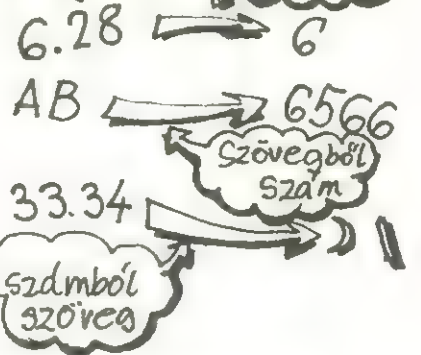 6.28 6
AB 6566
Szövegből
szám
33.34
számból
szöveg